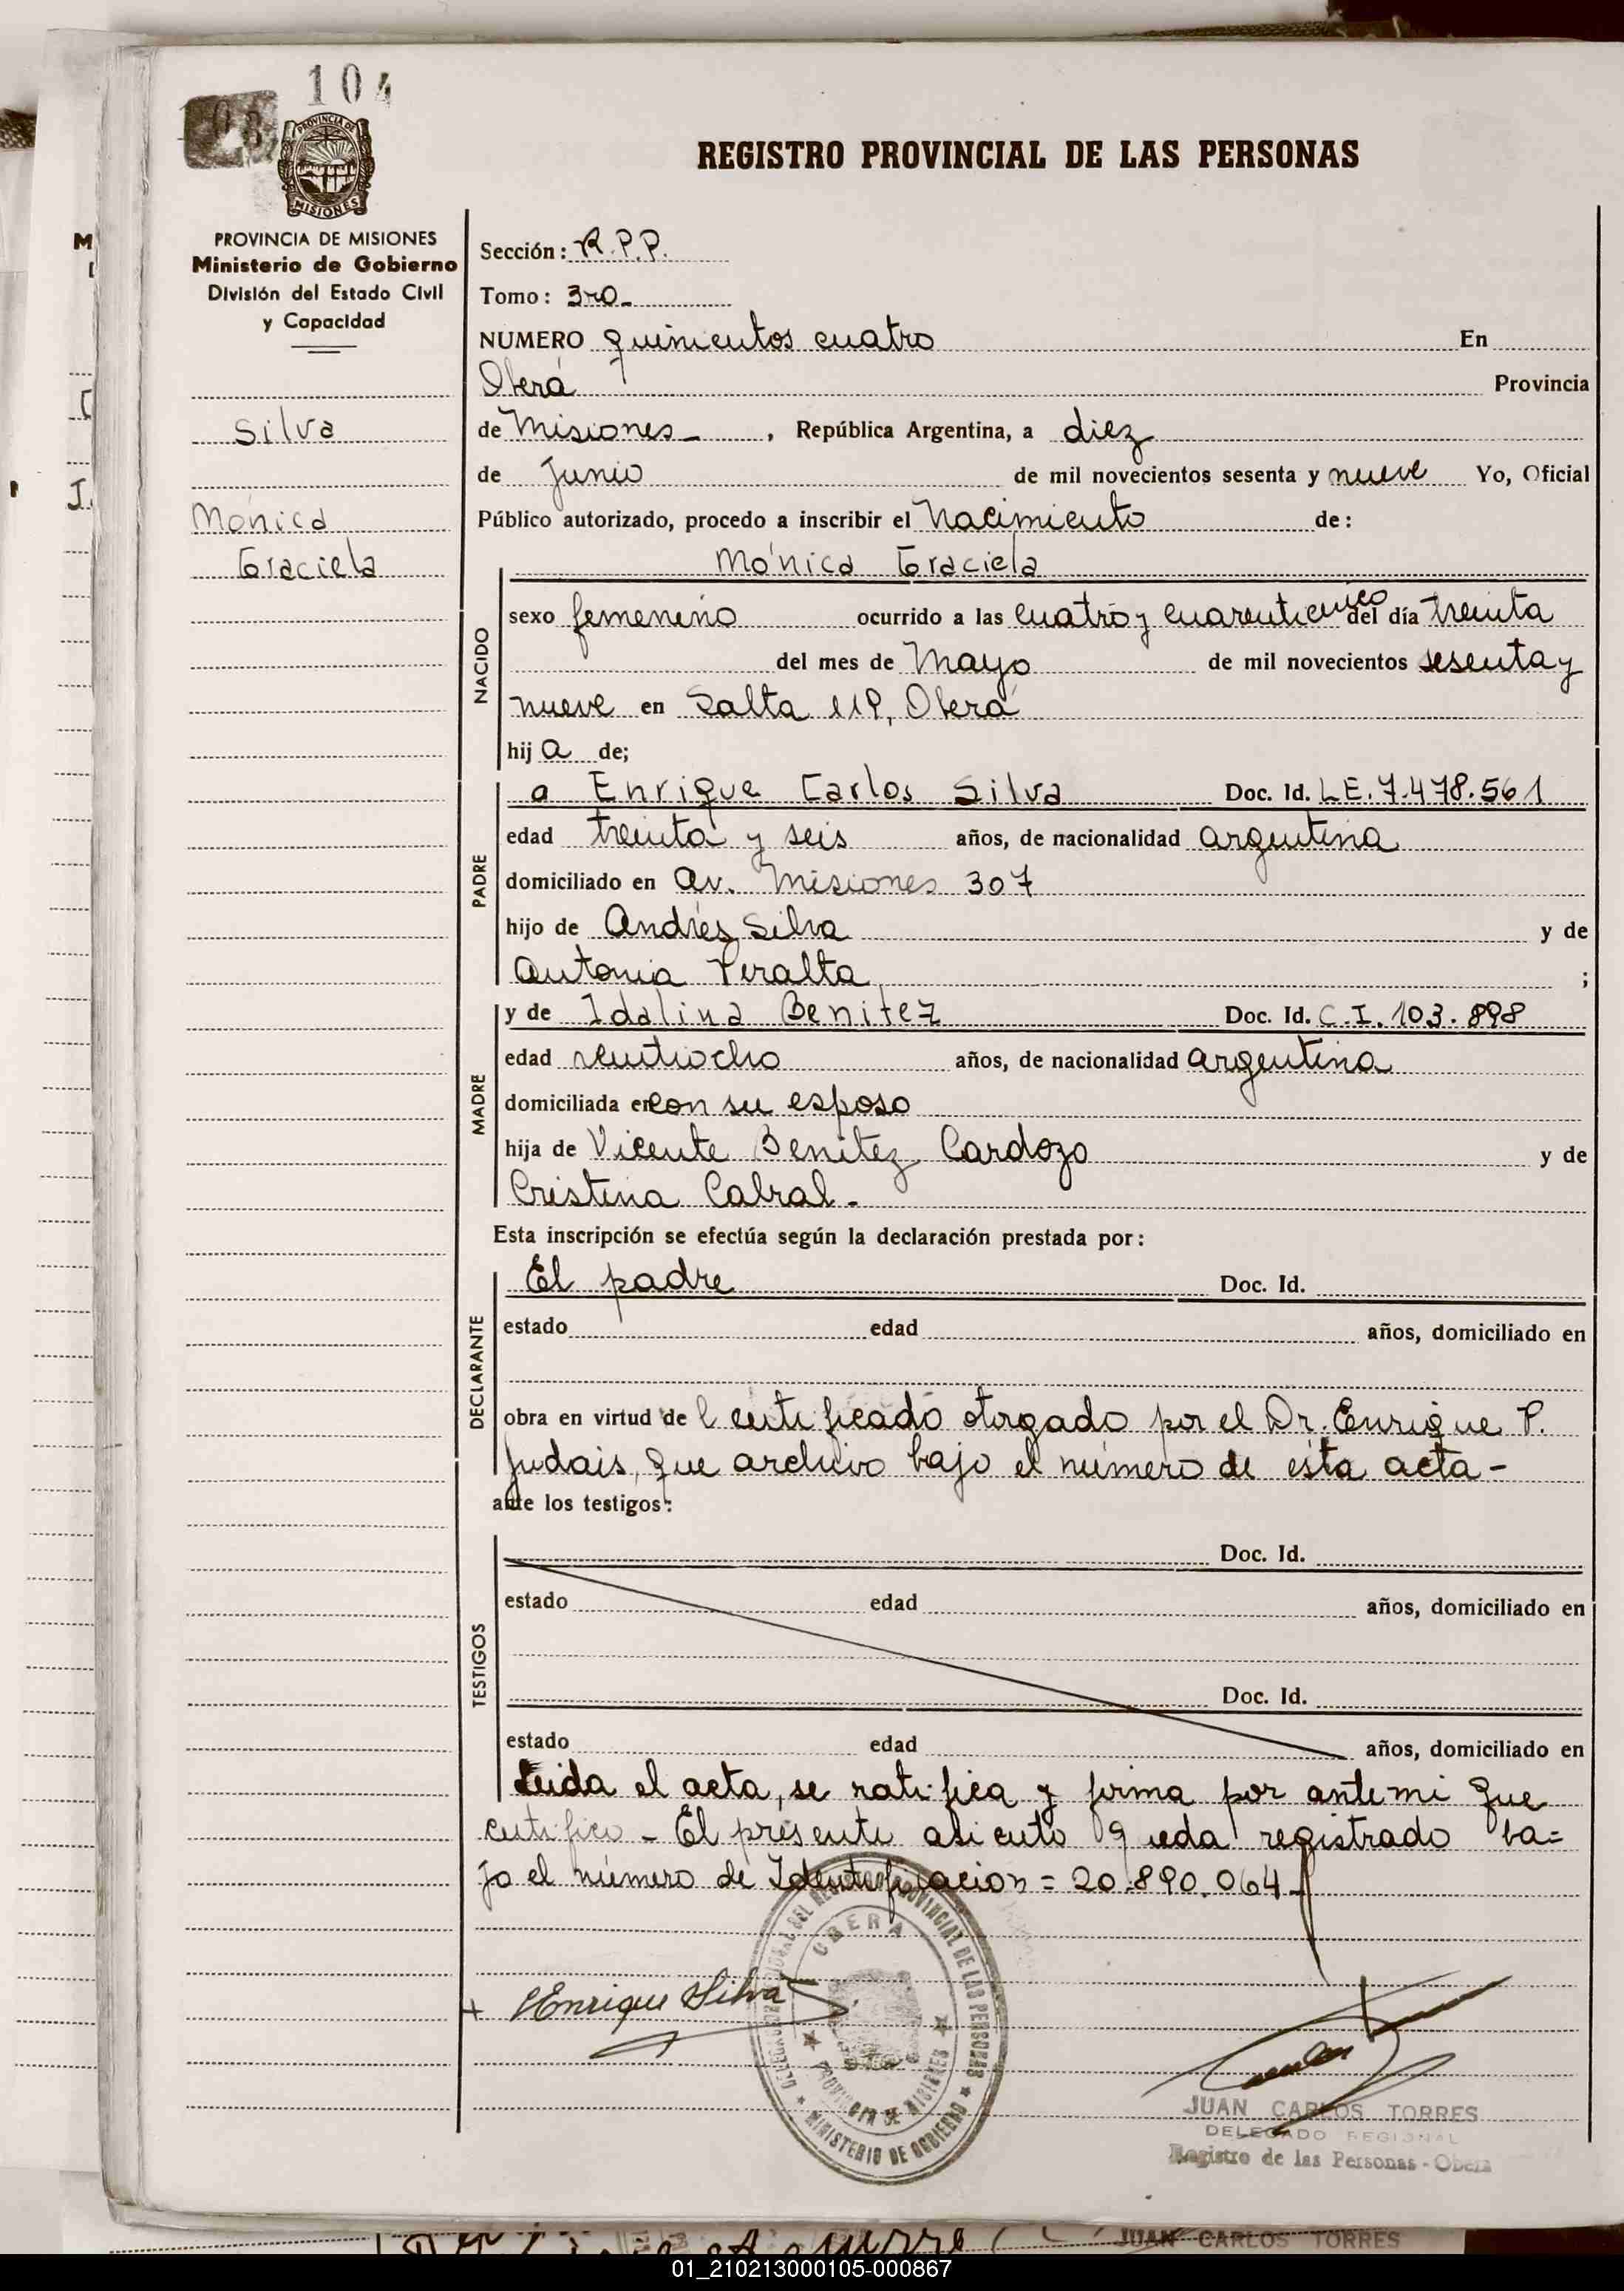 104
REGISTRO PROVINCIAL DE LAS PERSONAS
PROVINCIA DE
MISIONES
PROVINCIA DE MISIONES
Ministerio de Gobierno
División del Estado Civil
y Capacidad
Silva
Mónica
Graciela
Sección: R.P.P.
Tomo: 3ro.
NUMERO quinientos cuatro En
Oberá Provincia
de Misiones , República Argentina, a diez
de Junio de mil novecientos sesenta y nueve Yo, Oficial
Público autorizado, procedo a inscribir el Nacimiento de:
Mónica Graciela
NACIDO
sexo femenino ocurrido a las cuatro y cuarenticinco del día treinta
del mes de Mayo de mil novecientos sesenta y
nueve en Salta 119, Oberá
hij a de;
PADRE
a Enrique Carlos Silva Doc. Id. L.E. 7.478.561
edad treinta y seis años, de nacionalidad argentina
domiciliado en Av. Misiones 307
hijo de Andrés Silva y de
Antonia Peralta ;
MADRE
y de Idalina Benitez Doc. Id. C.I. 103.898
edad veintiocho años, de nacionalidad argentina
domiciliada en con su esposo
hija de Vicente Benitez Cardozo y de
Cristina Cabral.-
Esta inscripción se efectúa según la declaración prestada por:
DECLARANTE
El padre Doc. Id.
estado edad años, domiciliado en
obra en virtud de l certificado otorgado por el Dr. Enrique P.
Judais, que archivo bajo el número de esta acta -
ante los testigos:
TESTIGOS
Doc. Id.
estado edad años, domiciliado en
Doc. Id.
estado edad años, domiciliado en
Leida el acta, se ratifica y firma por ante mi que
certifico - El presente asiento queda registrado ba=
jo el número de Identificacion = 20.890.064-
OBERA
PROVINCIAL DE LAS PERSONAS
PROVINCIA DE MISIONES
MINISTERIO DE GOBIERNO
+ Enrique Silva
JUAN CARLOS TORRES
DELEGADO REGIONAL
Registro de las Personas - Obera
JUAN CARLOS TORRES
01_210213000105-000867